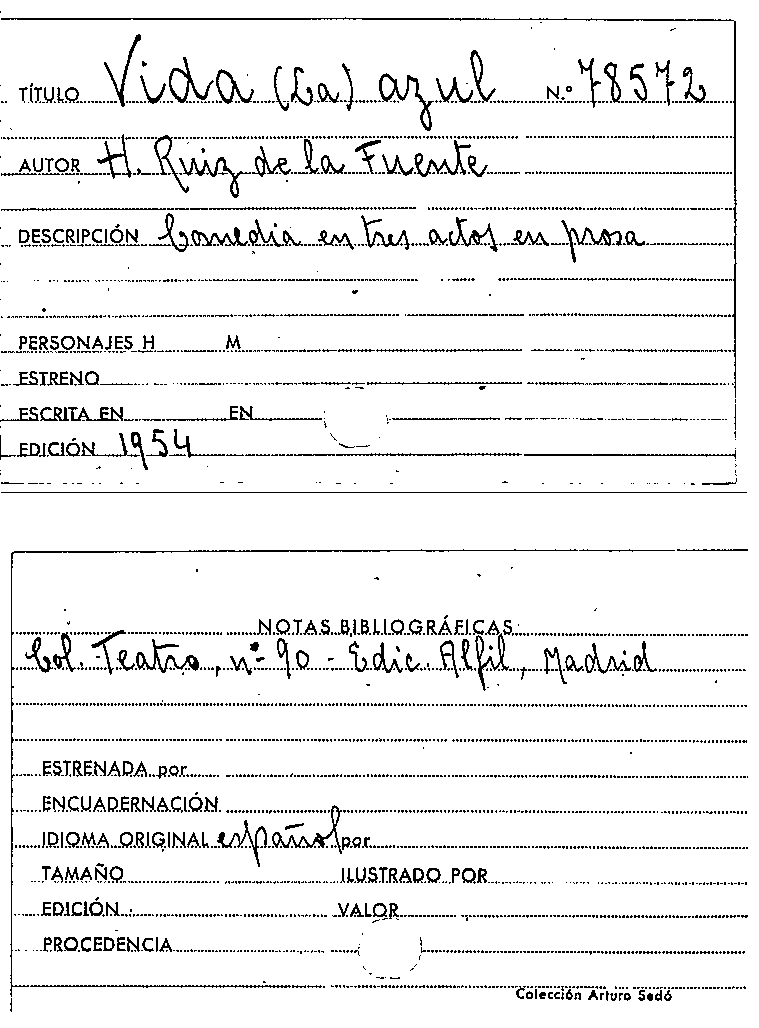 TÍTULO Vida (La) azul N.º 78572
AUTOR H. Ruiz de la Fuente
DESCRIPCIÓN Comedia en tres actos en prosa
PERSONAJES H M
ESTRENO
ESCRITA EN EN
EDICIÓN 1954
NOTAS BIBLIOGRÁFICAS
Col. Teatro, nº 90 - Edic. Alfil, Madrid
ESTRENADA por
ENCUADERNACIÓN
IDIOMA ORIGINAL español por
TAMAÑO ILUSTRADO POR
EDICIÓN VALOR
PROCEDENCIA
Colección Arturo Sedó